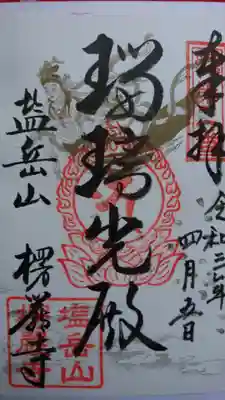 奉拝
令和三年
四月五日
瑠璃光殿
塩岳山
楞厳寺
塩岳山